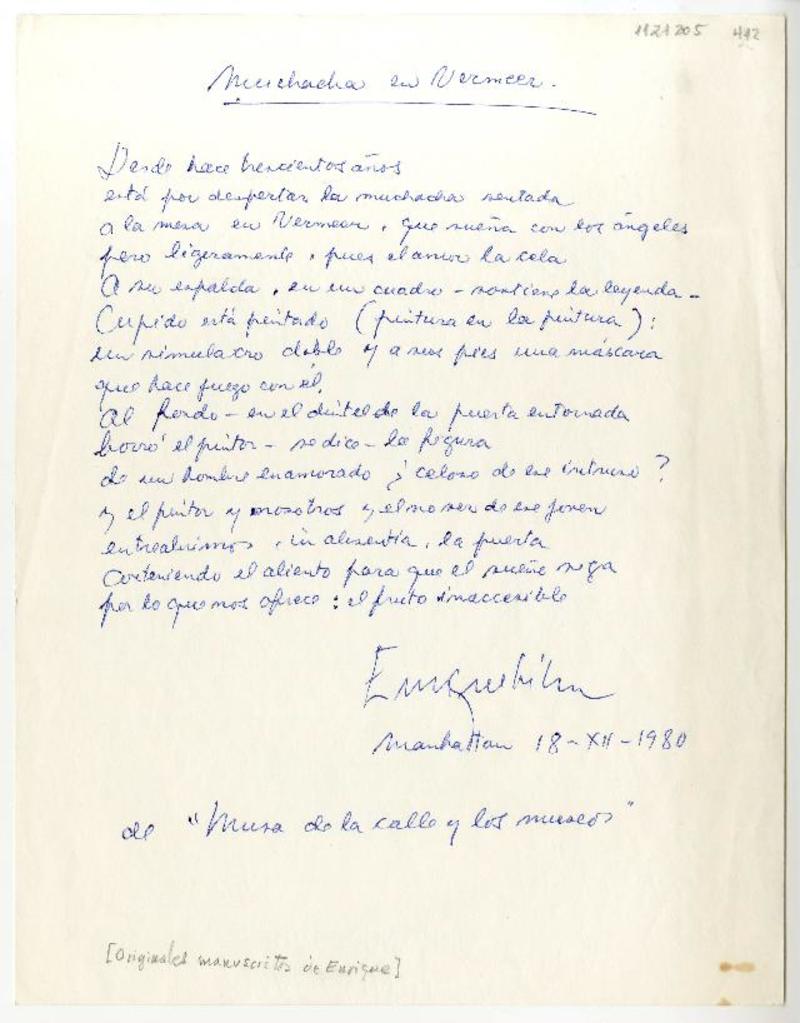 1121205 442
Muchacha en Vermeer.
Desde hace trescientos años
está por despertar la muchacha sentada
a la mesa en Vermeer, que sueña con los ángeles
pero ligeramente, pues el amor la cela
A su espalda, en un cuadro - sostiene la leyenda -
Cupido está pintado (pintura en la pintura):
un simulacro doble y a sus pies una máscara
que hace juego con él.
Al fondo - en el dintel de la puerta entornada
borró el pintor - se dice - la figura
de un hombre enamorado ¿celoso de ese intruso?
y el pintor y nosotros y el no ser de ese joven
entreabrimos, in absentia, la puerta
conteniendo el aliento para que el sueñe siga
por lo que nos ofrece: el fruto inaccesible
Enrique Lihn
Manhattan 18-XII-1980
de "Musa de la calle y los museos"
[Originales manuscritos de Enrique]